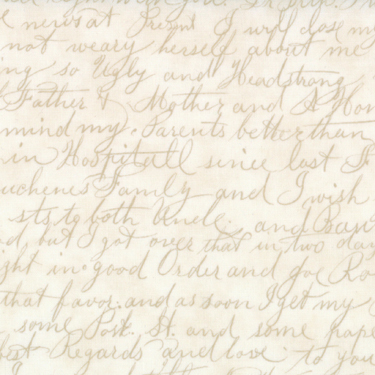 news at Present I will close my
not weary herself about me
ing so Ugly and Headstrong
Father & Mother and
mind my Parents better than
in Hospitall since last
Family and I wish
sts to both Uncle. and
but I got over that in two day
ght in good Order and
that favor. and as soon I get my
some Post. St. and some pape
best Regards and love to you